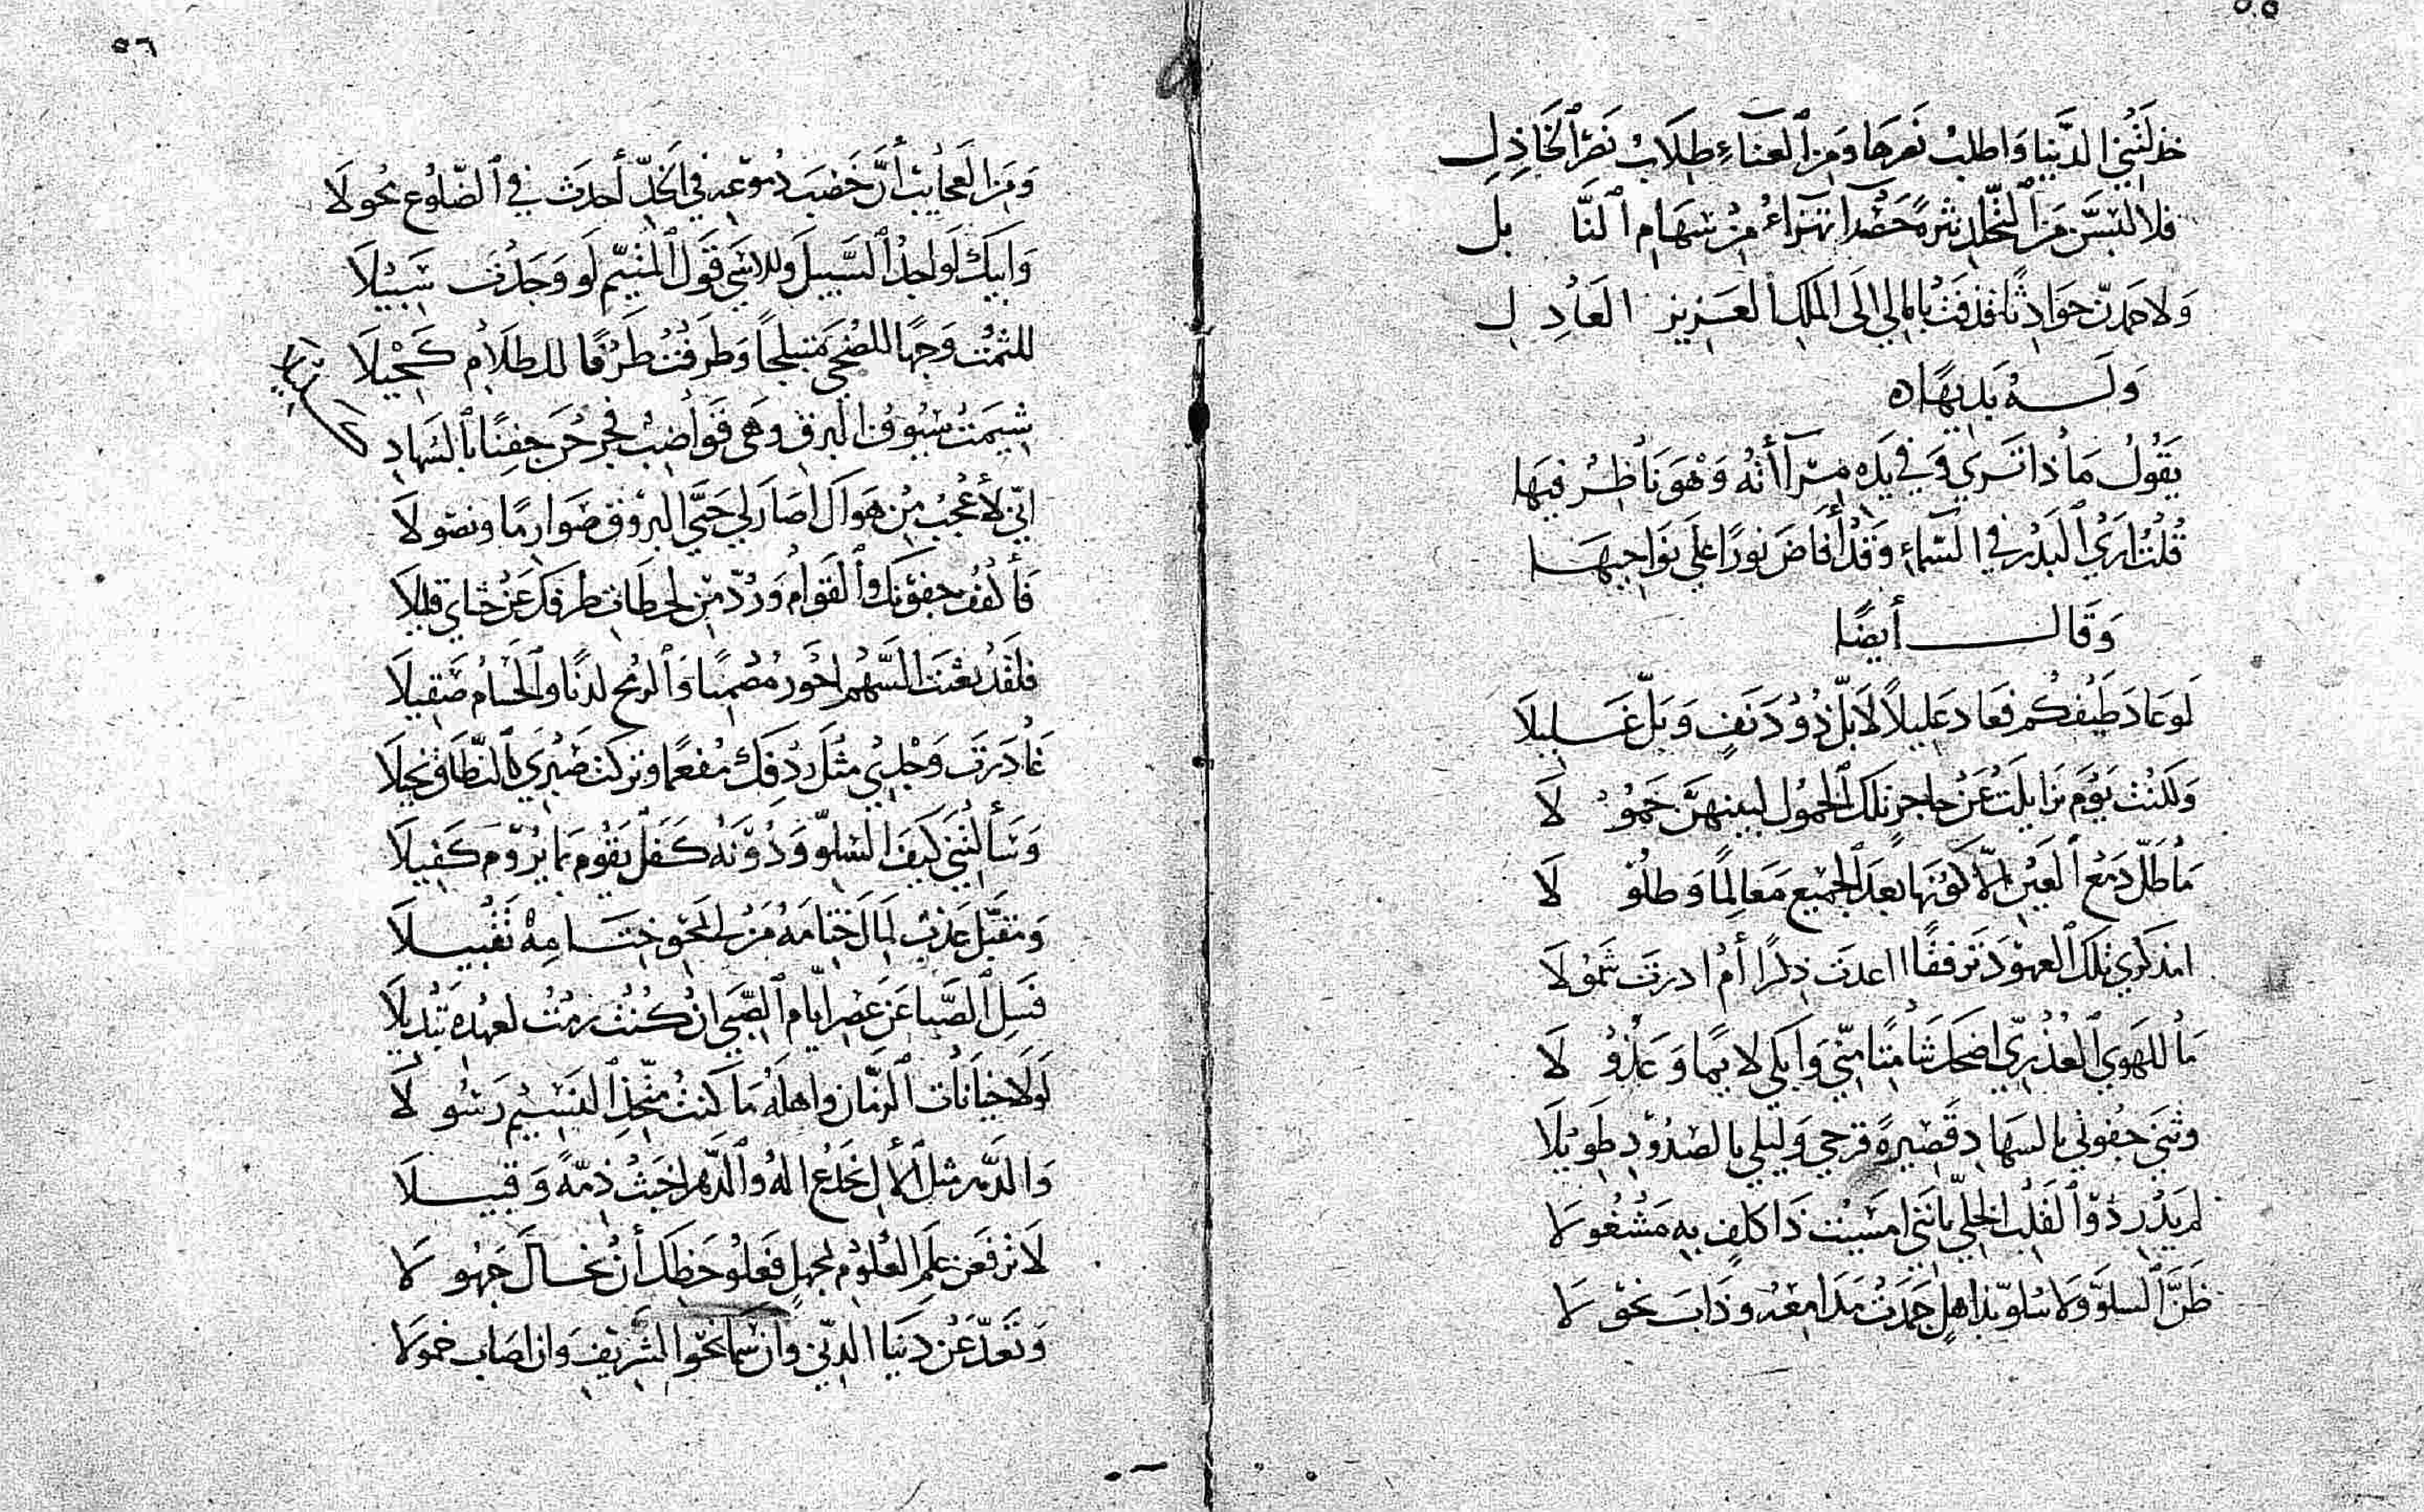 ٥٥
خذلتني الدنيا واطلب نصرها ومن العناء طلاب نصر الخاذل
فلا لبسن من التجلد نثرة حصدا تهزاء من سهام النابل
ولاحمدن حوادثا قذفت بامالي الى الملك العزيز العادل
وله بديها ه
يقول ماذا ترى وفي يده مرآأته وهو ناظر فيها
قلت ارى البدر في السماء وقد أفاض نورا على نواحيها
وقال أيضا
لو عاد طيفكم فعاد عليلا لابل ذو دنف وبل غليلا
ولكنت يوم تزايلت عن حاجر تلك الحمول لبينهن حمولا
ما طل دمع العين الا كونها بعد الجميع معالما وطلولا
امذكري تلك العهود ترفقا اعدت ذكرا أم ادرت شمولا
ما للهوى العذري اضحك شامتا مني وابكى لايما وعذولا
وثنى جفوني بالسهاد قصيرة قرحى وليلي بالصدود طويلا
لم يدر ذو القلب الخلي بانني امسيت ذا كلف به مشغولا
ظن السلو ولا سلو بذاهل جمدت مدامعه وذاب نحولا
٥٦
ومن العجايب أن خصب دموعه في الخد أحدث في الضلوع محولا
وابيك لو اجد السبيل وللاسى قول المتيم لو وجدت سبيلا
للثمت وجها للضحى متبلجا وطرفت طرفا للظلام كحيلا
شيمت سيوف البرق وهي قواضب فجرحن جفنا بالسهاد
اني لأعجب من هواك اصار لي حتى البروق صوارما ونصولا
فأكفف جفونك والقوام ورد من لحظات طرفك عن حشاي قليلا
فلقد بعثت السهم احور مصميا والرمح لدنا والحسام صقيلا
غادرت وجدي مثل ردفك مفعما وتركت صبري كالنطاق نحيلا
وسألتني كيف السلو ودونه كفل يقوم بما يروم كفيلا
ومقبل عذب لمال ختامه من لي بمحو ختامه تقبيلا
فسل الصبا عن عصر ايام الصبى ان كنت رمت لعهده تبديلا
لولا خيانات الزمان واهله ما كنت متخذ النسيم رسولا
والدهر مثل الأل يخدع اله والدهر اخبث ذمة وقبيلا
لا ترفعن علم العلوم لجهل فعلو حظك أن تخال جهولا
وتعد عن دنيا الدني وان سما نحو الشريف وان اصاب خمولا